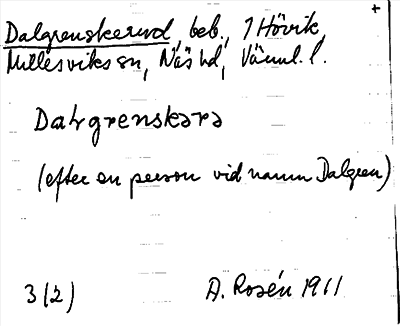 Dalgrenskerud, beb., 7 Hövik,
Millesviks sn, Näs hd, Värml. l.
Dalgrenskara
(efter en person vid namn Dalgren)
3(2) A. Rosén 1911